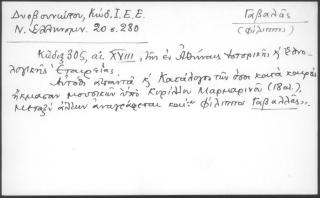 Δυοβουνιώτου, Κώδ. Ι.Ε.Ε.
Ν. Ἑλληνομν. 20 σ. 280
Γαβαλᾶς
(Φίλιππος)
Κῶδιξ 305, αἰ. XVIII, τῆς ἐν Ἀθήναις Ἱστορικῆς κ' Ἐθνο-
λογικῆς Ἑταιρείας.
Αὐτόθι ἀπαντᾷ κ' Κατάλογος τῶν ὅσοι κατὰ καιροὺς
ἤκμασαν μουσικῶν ὑπὸ Κυρίλλου Μαρμαρινοῦ (18 αἰ.),
Μεταξὺ ἄλλων ἀναγράφεται καί: "Φίλιππος Γαβαλᾶς".